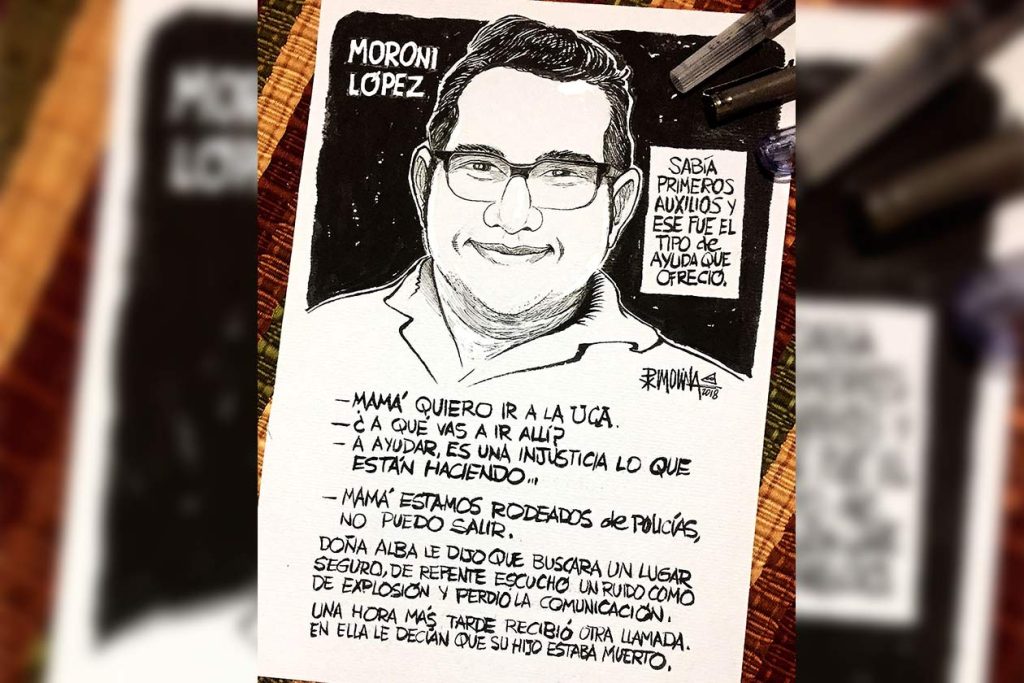 MORONI
LÓPEZ
SABÍA
PRIMEROS
AUXILIOS Y
ESE FUE EL
TIPO de
AYUDA QUE
OFRECIÓ.
PXMOLINA
2018
—MAMÁ QUIERO IR A LA UCA.
—¿A QUÉ VAS A IR ALLÍ?
— A AYUDAR, ES UNA INJUSTICIA LO QUE
ESTÁN HACIENDO...
— MAMÁ ESTAMOS RODEADOS de POLICÍAS,
NO PUEDO SALIR.
DOÑA ALBA LE DIJO QUE BUSCARA UN LUGAR
SEGURO, DE REPENTE ESCUCHÓ UN RUIDO COMO
DE EXPLOSIÓN Y PERDIÓ LA COMUNICACIÓN.
UNA HORA MÁS TARDE RECIBIÓ OTRA LLAMADA.
EN ELLA LE DECÍAN QUE SU HIJO ESTABA MUERTO.